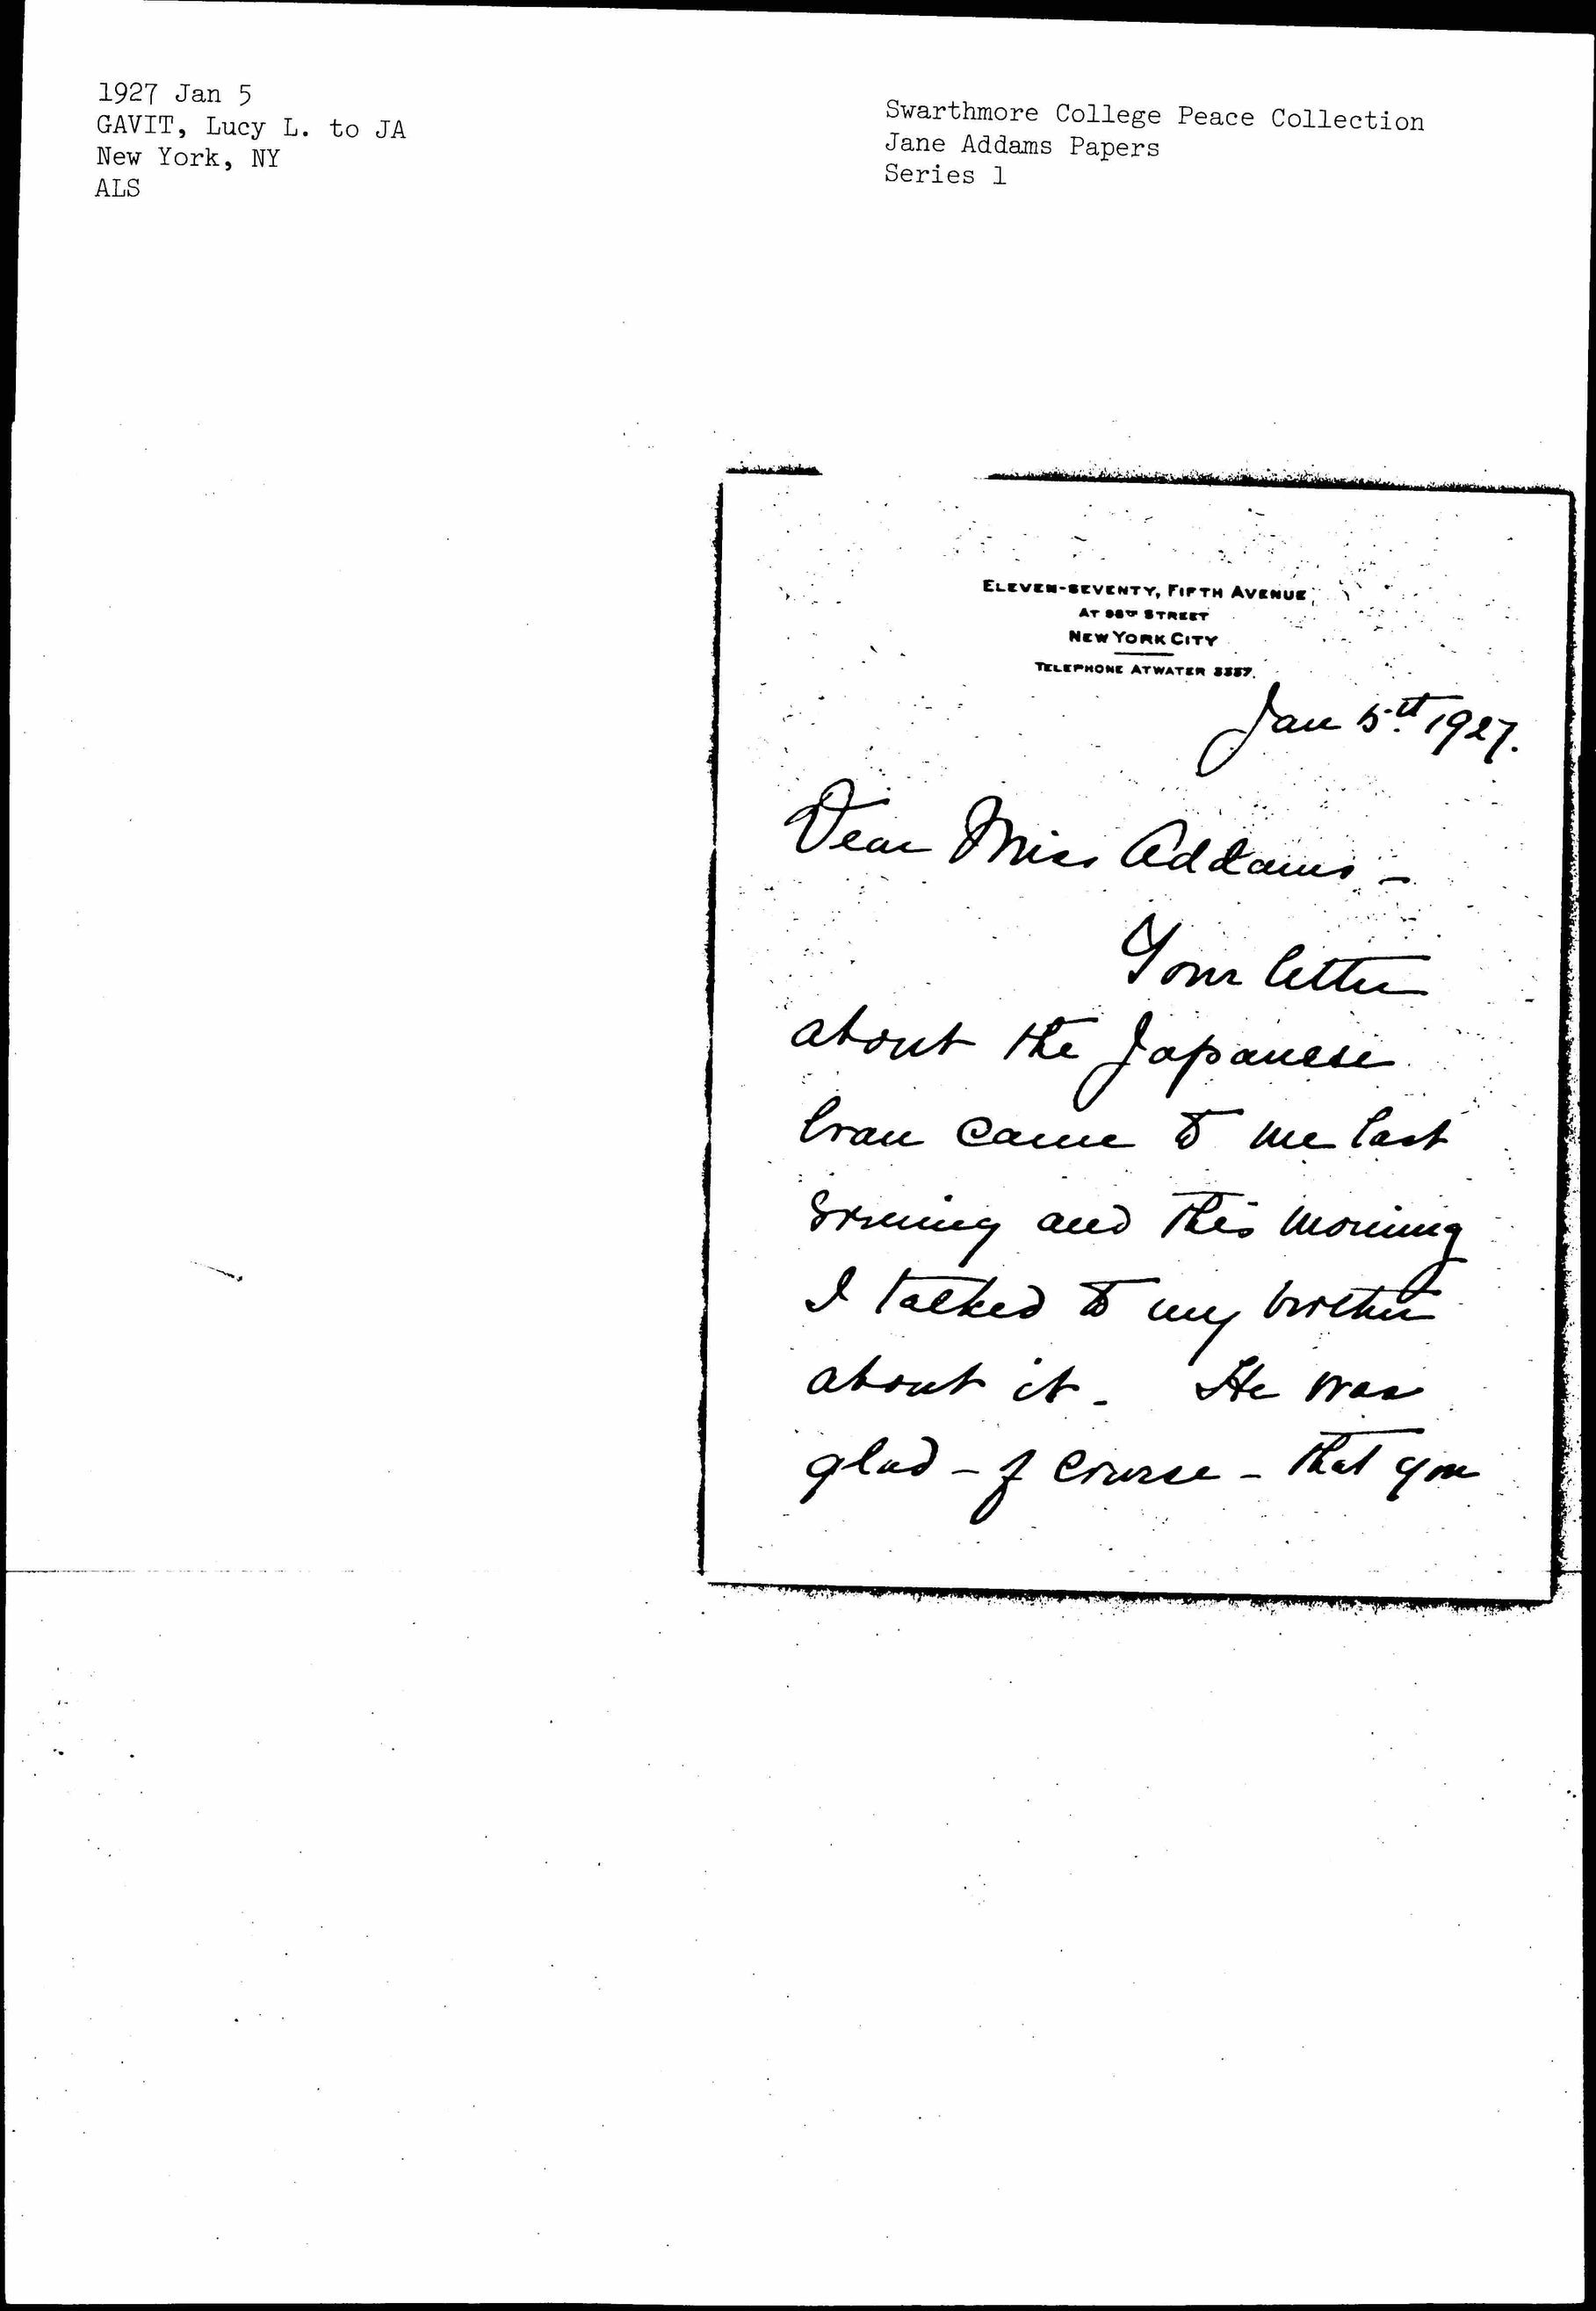 1927 Jan 5
GAVIT, Lucy L. to JA
New York, NY
ALS
Swarthmore College Peace Collection
Jane Addams Papers
Series 1
ELEVEN-SEVENTY, FIFTH AVENUE
AT 98TH STREET
NEW YORK CITY
TELEPHONE ATWATER 3557.
Jan 5th 1927.
Dear Miss Addams –
Your letter
about the Japanese
loan came to me last
evening and this morning
I talked to my brother
about it – He was
glad – of course – that you